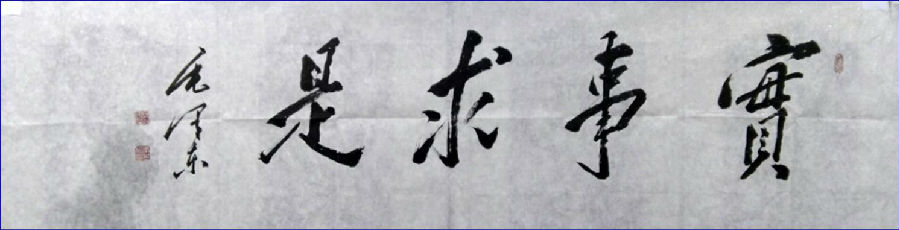 實事求是
毛澤东